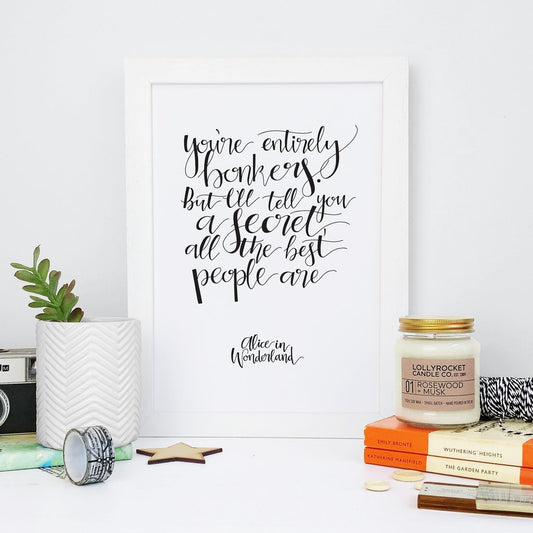 You're entirely
bonkers.
But I'll tell you
a secret,
all the best
people are
Alice in
Wonderland
LOLLYROCKET
CANDLE CO.
01 ROSEWOOD
+ MUSK
EMILY BRONTE WUTHERING HEIGHTS
KATHERINE MANSFIELD THE GARDEN PARTY